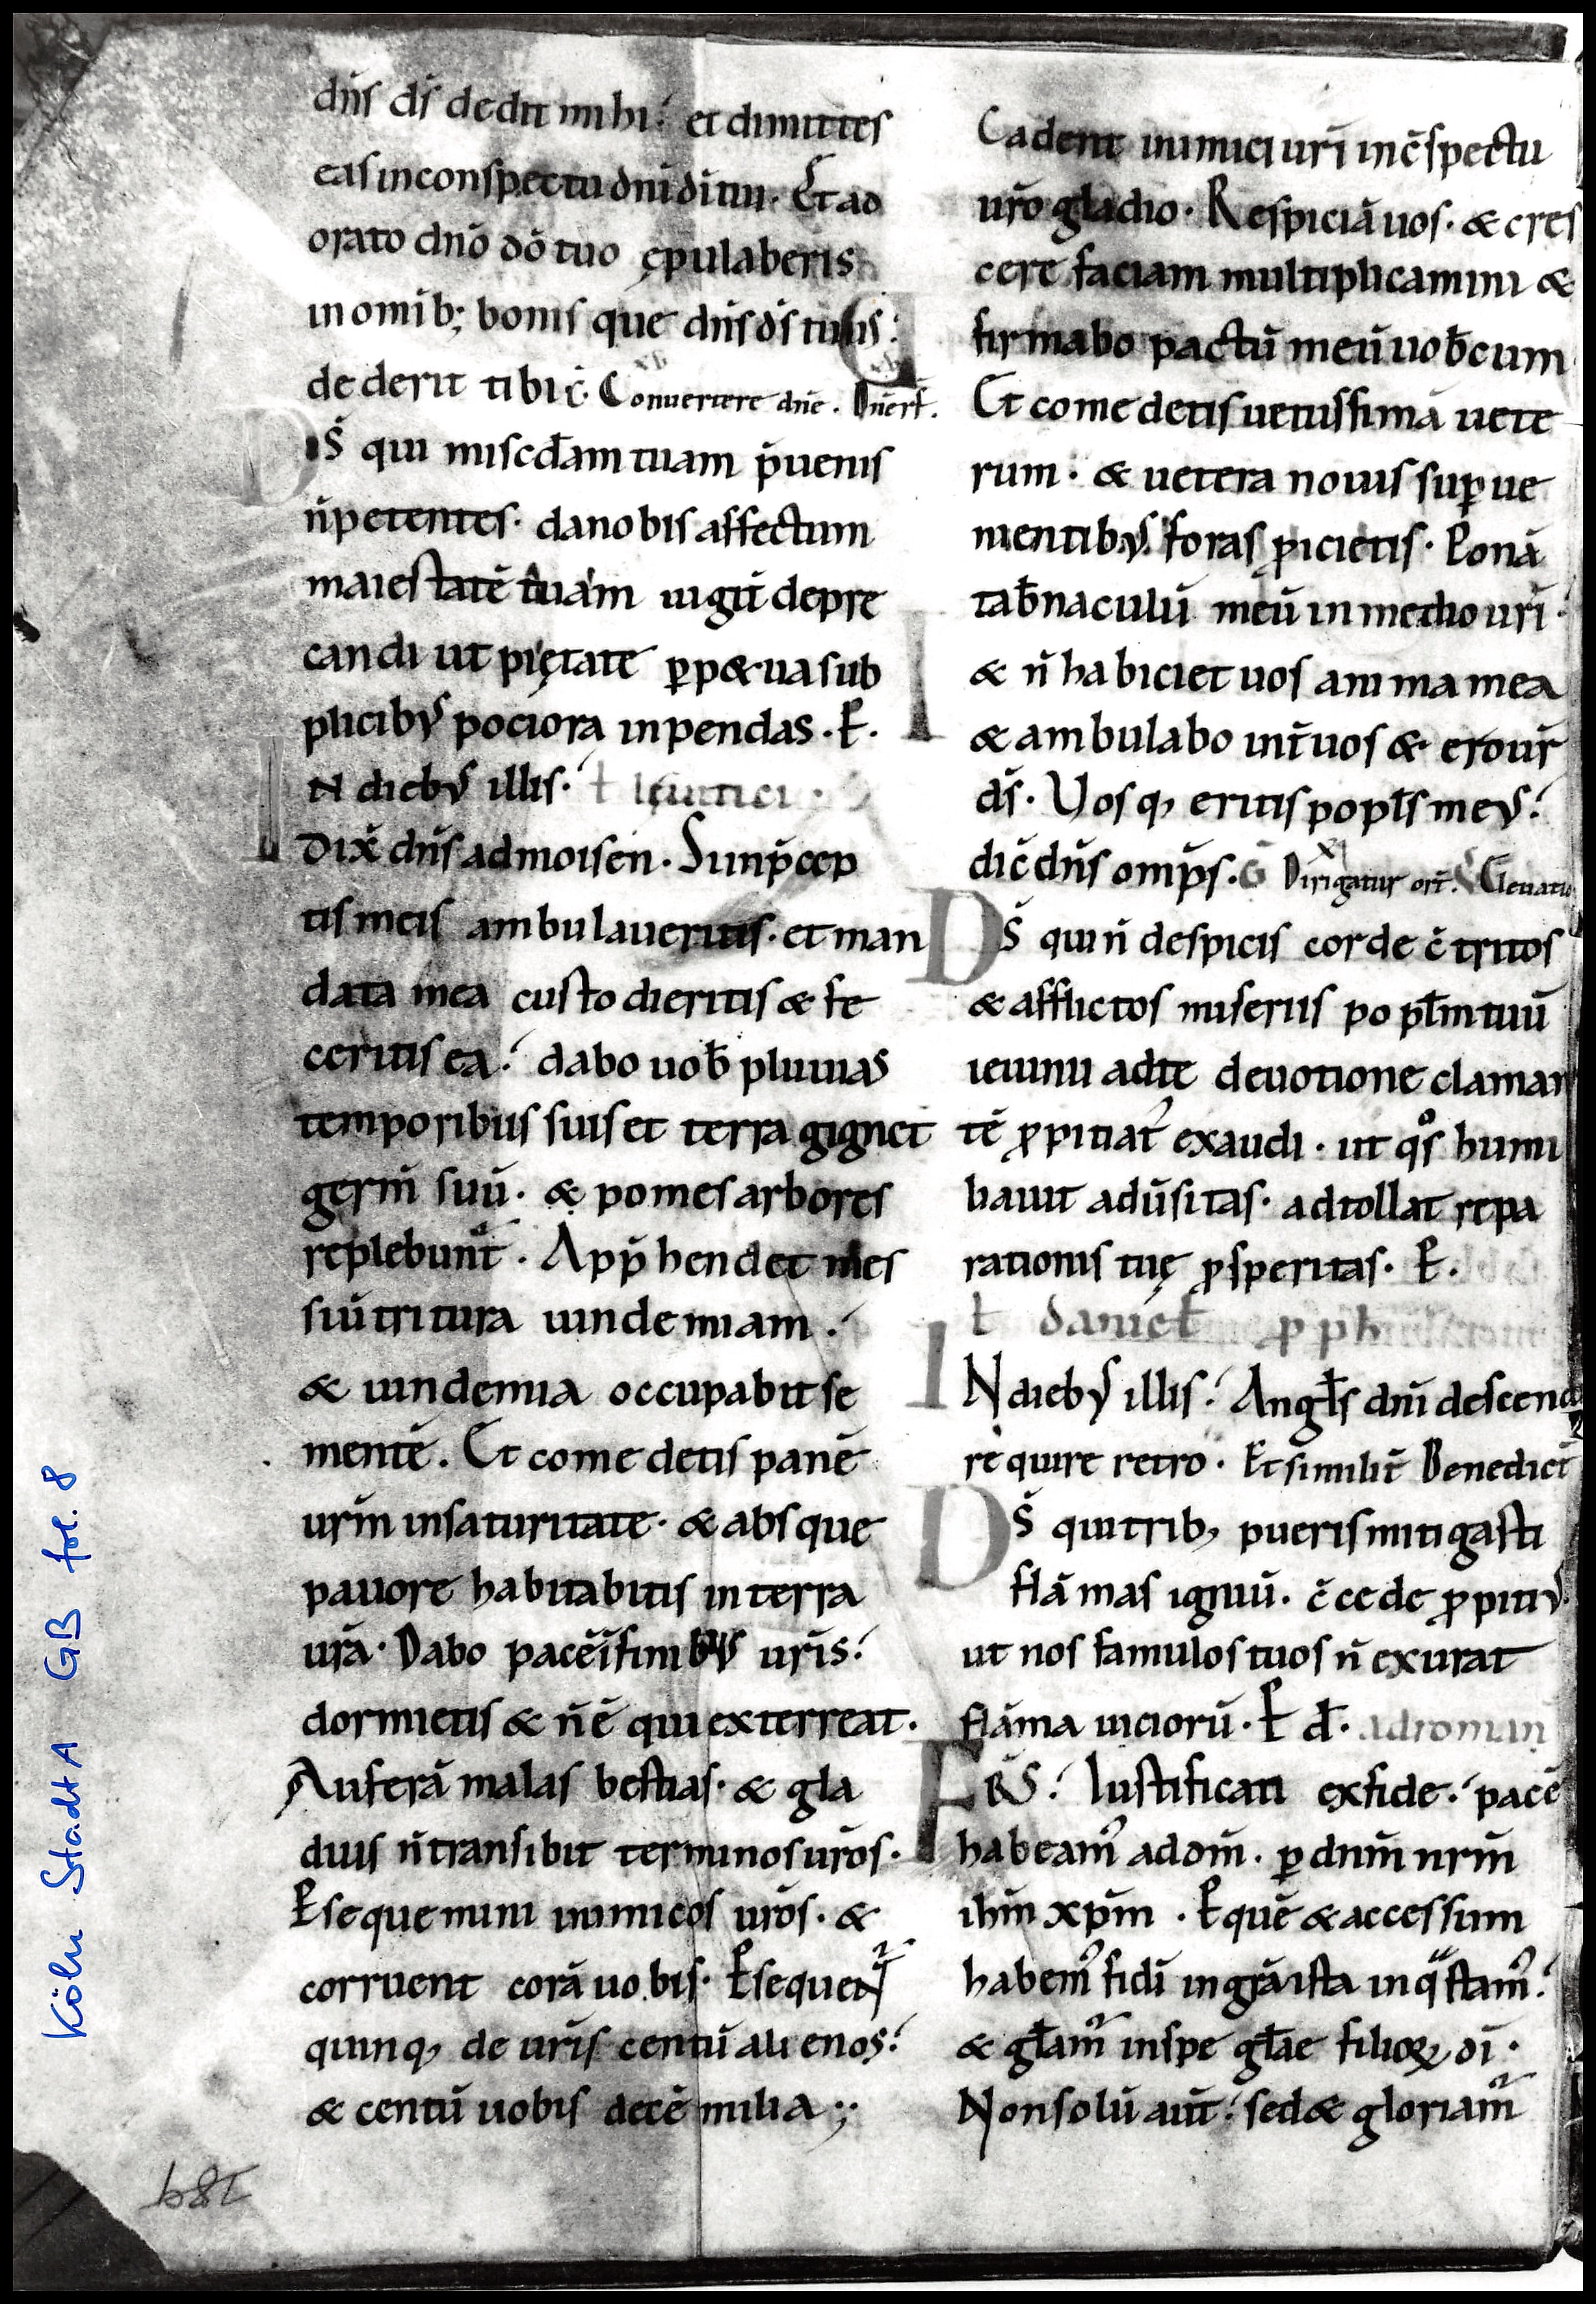 dn̄s ds̄ dedit mihi. et dimittes
eas in conspectu dn̄i dī tui. Et ad
orato dn̄o dō tuo ępulaberis
in omīb; bonis que dn̄s ds̄ tuus
dederit tibi. G Conuertere dn̄e. V Dn̄e rf̄.
Ds̄ qui misc̄dam tuam p̄uenis
n̄ petentes. da nobis affectum
maiestatē tuam iugit̄ depre
candi ut pietate ꝑpetua sub
plicibꝰ pociora inpendas. P.
IN diebꝰ illis. ł leuitici.
Dix̄ dn̄s ad moisen. Si in p̄cep
tis meis ambulaueritis. et man
data mea custodieritis & fe
ceritis ea. dabo uob̄ pluuias
temporibus suis et terra gignet
germ̄ suū. & pomes arbores
replebunt̄. App̄hendet mes
siū tritura uindemiam.
& uindemia occupabit se
mentē. Et comedetis panē
urm̄ in saturitate. & absque
pauore habitabitis in terra
urā. Dabo pacē ī finibꝰ uris̄.
dormietis & n̄ ē qui exterreat.
Auferā malas bestias. & gla
dius n̄ transibit terminos urōs.
Psequemini inimicos urōs. &
corruent corā uobis. Psequent̄
quinq, de uris̄ centū alienos.
& centū uobis decē milia;
Cadent inimici urī in c̄spectu
urō gladio. Respiciā uos. & cres
cere faciam multiplicamini &
firmabo pactū meū uob̄cum
Et comedetis uetuissimā uete
rum. & uetera nouis suꝑue
nientibꝰ foras ꝓicietis. Ponā
tab̄naculū meū in medio urī.
& n̄ habiciet uos anima mea
& ambulabo int̄ uos & ero ur̄
ds̄. Uosq, eritis popls̄ meꝰ.
dic̄ dn̄s omp̄s. G Dirigatur or̄. V Eleuatio
Ds̄ qui n̄ despicis corde c̄tritos
& afflictos miseriis poplm̄ tuū
ieiunii ad te deuotione claman
tē ꝓpitiat᷒ exaudi. ut qͦs humi
liauit adūsitas. adtollat repa
rationis tuę ꝓsperitas. P.
ł daniel̄ ꝓph
IN diebꝰ illis. Angls̄ dn̄i descend
re quire retro. Et similit̄ Benedict̄
Ds̄ qui trib, pueris mitigasti
flāmas igniū. c̄cede ꝓpitiꝰ
ut nos famulos tuos n̄ exurat
flāma uiciorū. P d̄. ad roman
FRS̄. Iustificati ex fide. pacē
habeamꝰ ad dm̄. ꝑ dnm̄ nrm̄
ihm̄ xpm̄. P quē & accessum
habemꝰ fidī in grā ista in qͣ stamꝰ.
& głam᷒ in spe głae filioꝝ dī.
Non solū aut̄. sed & gloriam᷒
189
Köln StadtA GB fol. 8